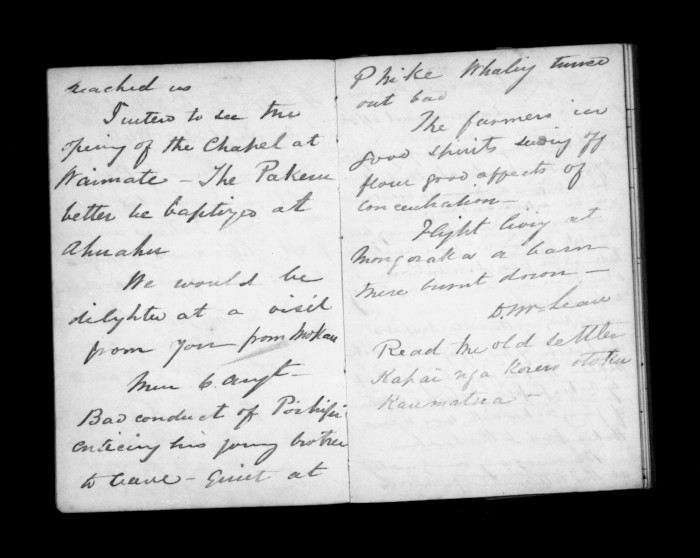 reached us
I intend to see the
opening of the Chapel at
Waimate – The Pakeu
better be baptized at
Ahuahu
We would be
delighted at a visit
from you from Mokau
Bad conduct of
enticing his young brother
to leave – Quiet at
Whaling turned
out bad
The farmers in
good spirits sending off
flour good affects of
concentration –
Flight living at
Mongoraka a barn
there burnt down –
D. McLean
Read the old settler
Kapai nga korero
Kaumatua –